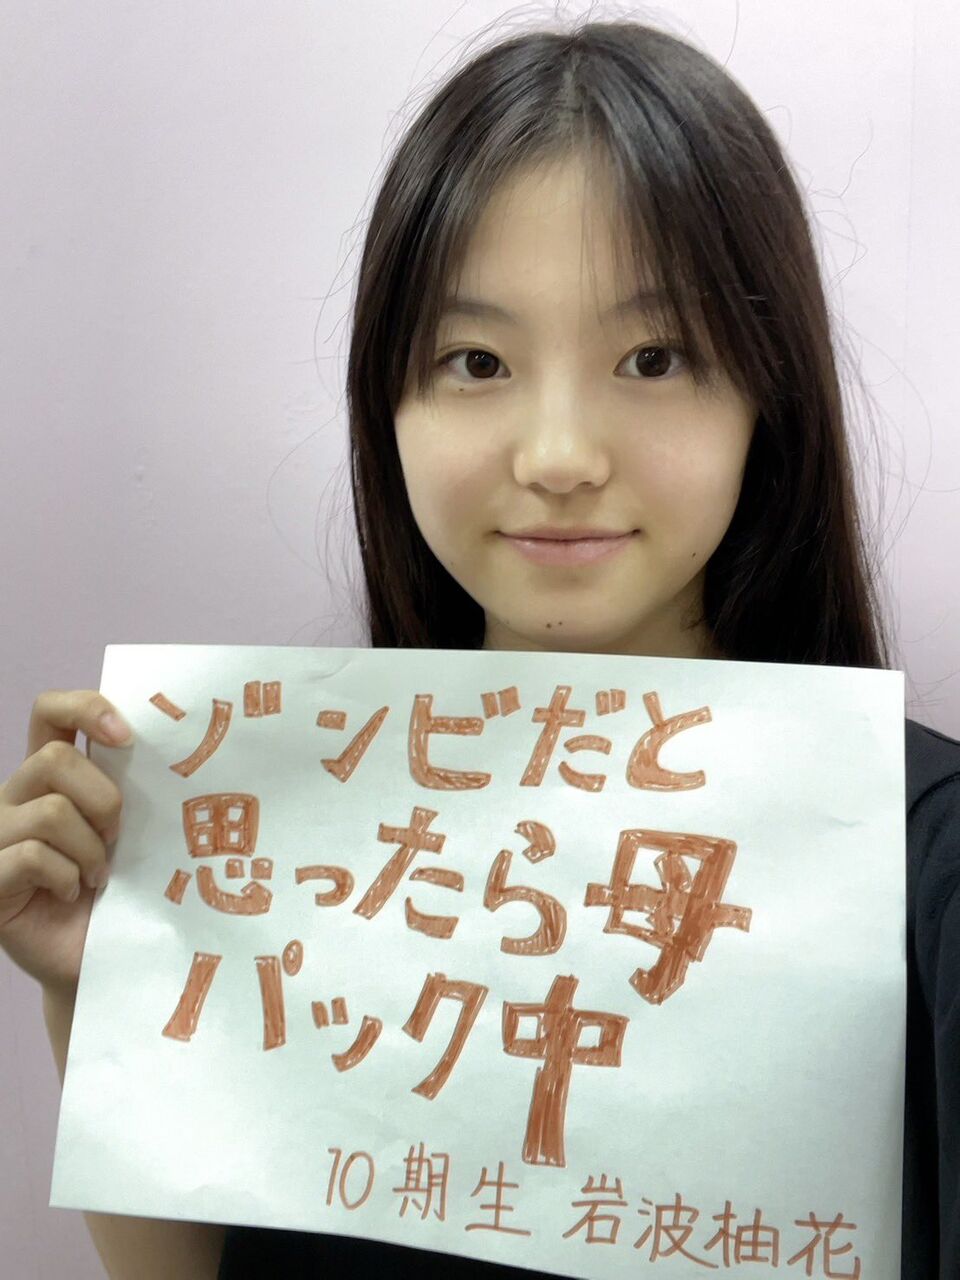 ゾンビだと
思ったら母
パック中
10期生 岩波柚花